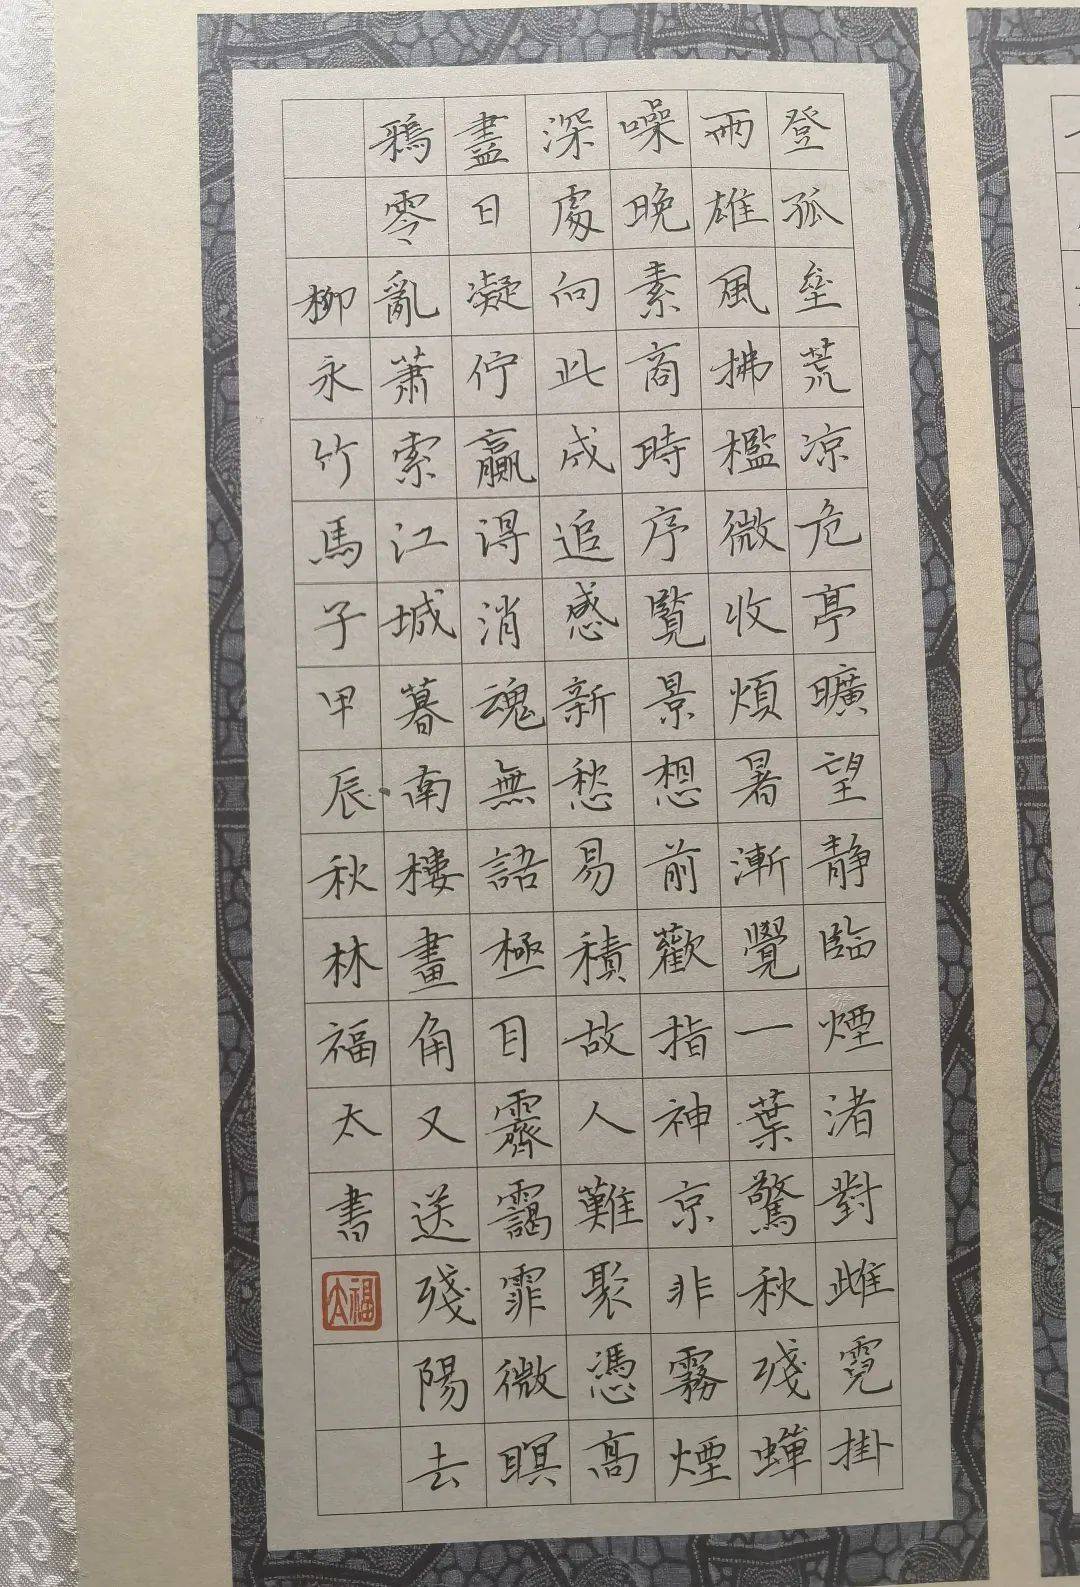 登孤垒荒凉危亭曠望静臨煙渚對雌霓掛
雨雄風拂檻微收煩暑漸覺一葉驚秋殘蟬
噪晚素商時序覽景想前歡指神京非霧煙
深處向此成追感新愁易積故人難聚憑高
盡日凝佇贏得消魂無語極目霽靄霏微暝
鴉零亂蕭索江城暮南樓畫角又送殘陽去
柳永竹馬子甲辰秋林福太書
福太